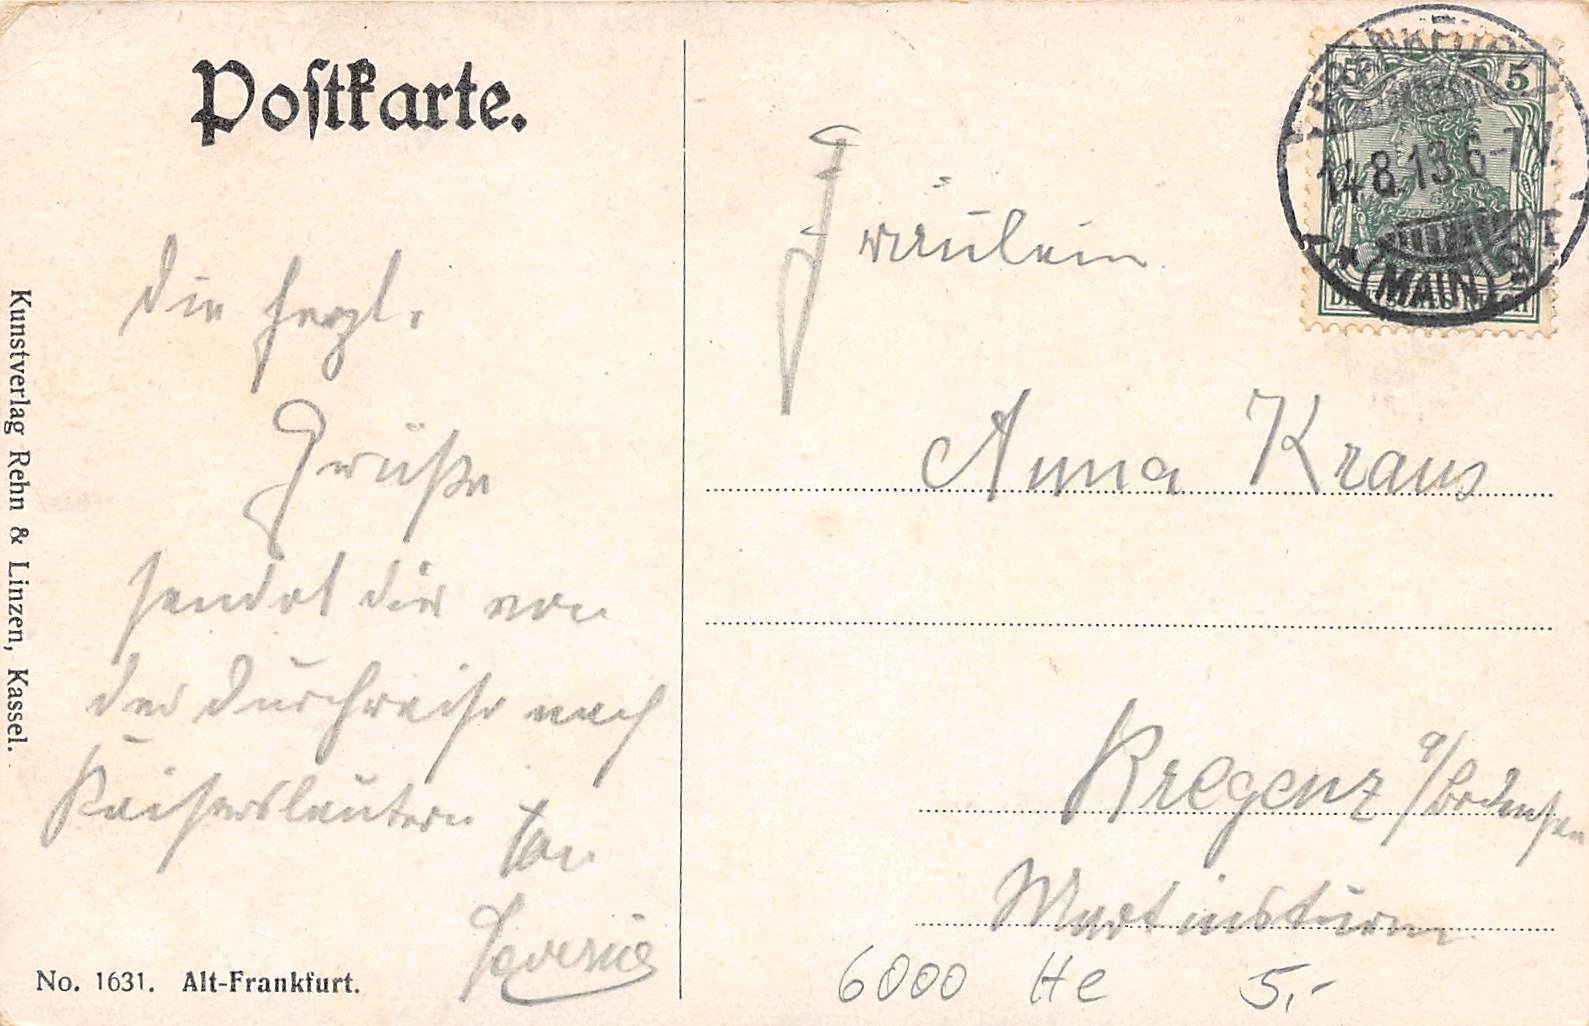 Postkarte.
FRANKFURT
14.8.13.6-7N.
* (MAIN)
5
5
DEUTSCHES REICH
Fräulein
Anna Kraus
Bregenz a/Bodensee
Martinsturm
Die herzl.
Grüße
sendet dir von
der Durchreise nach
Kaiserslautern
Severin
Kunstverlag Rehn & Linzen, Kassel.
No. 1631. Alt-Frankfurt.
6000 He 5,-